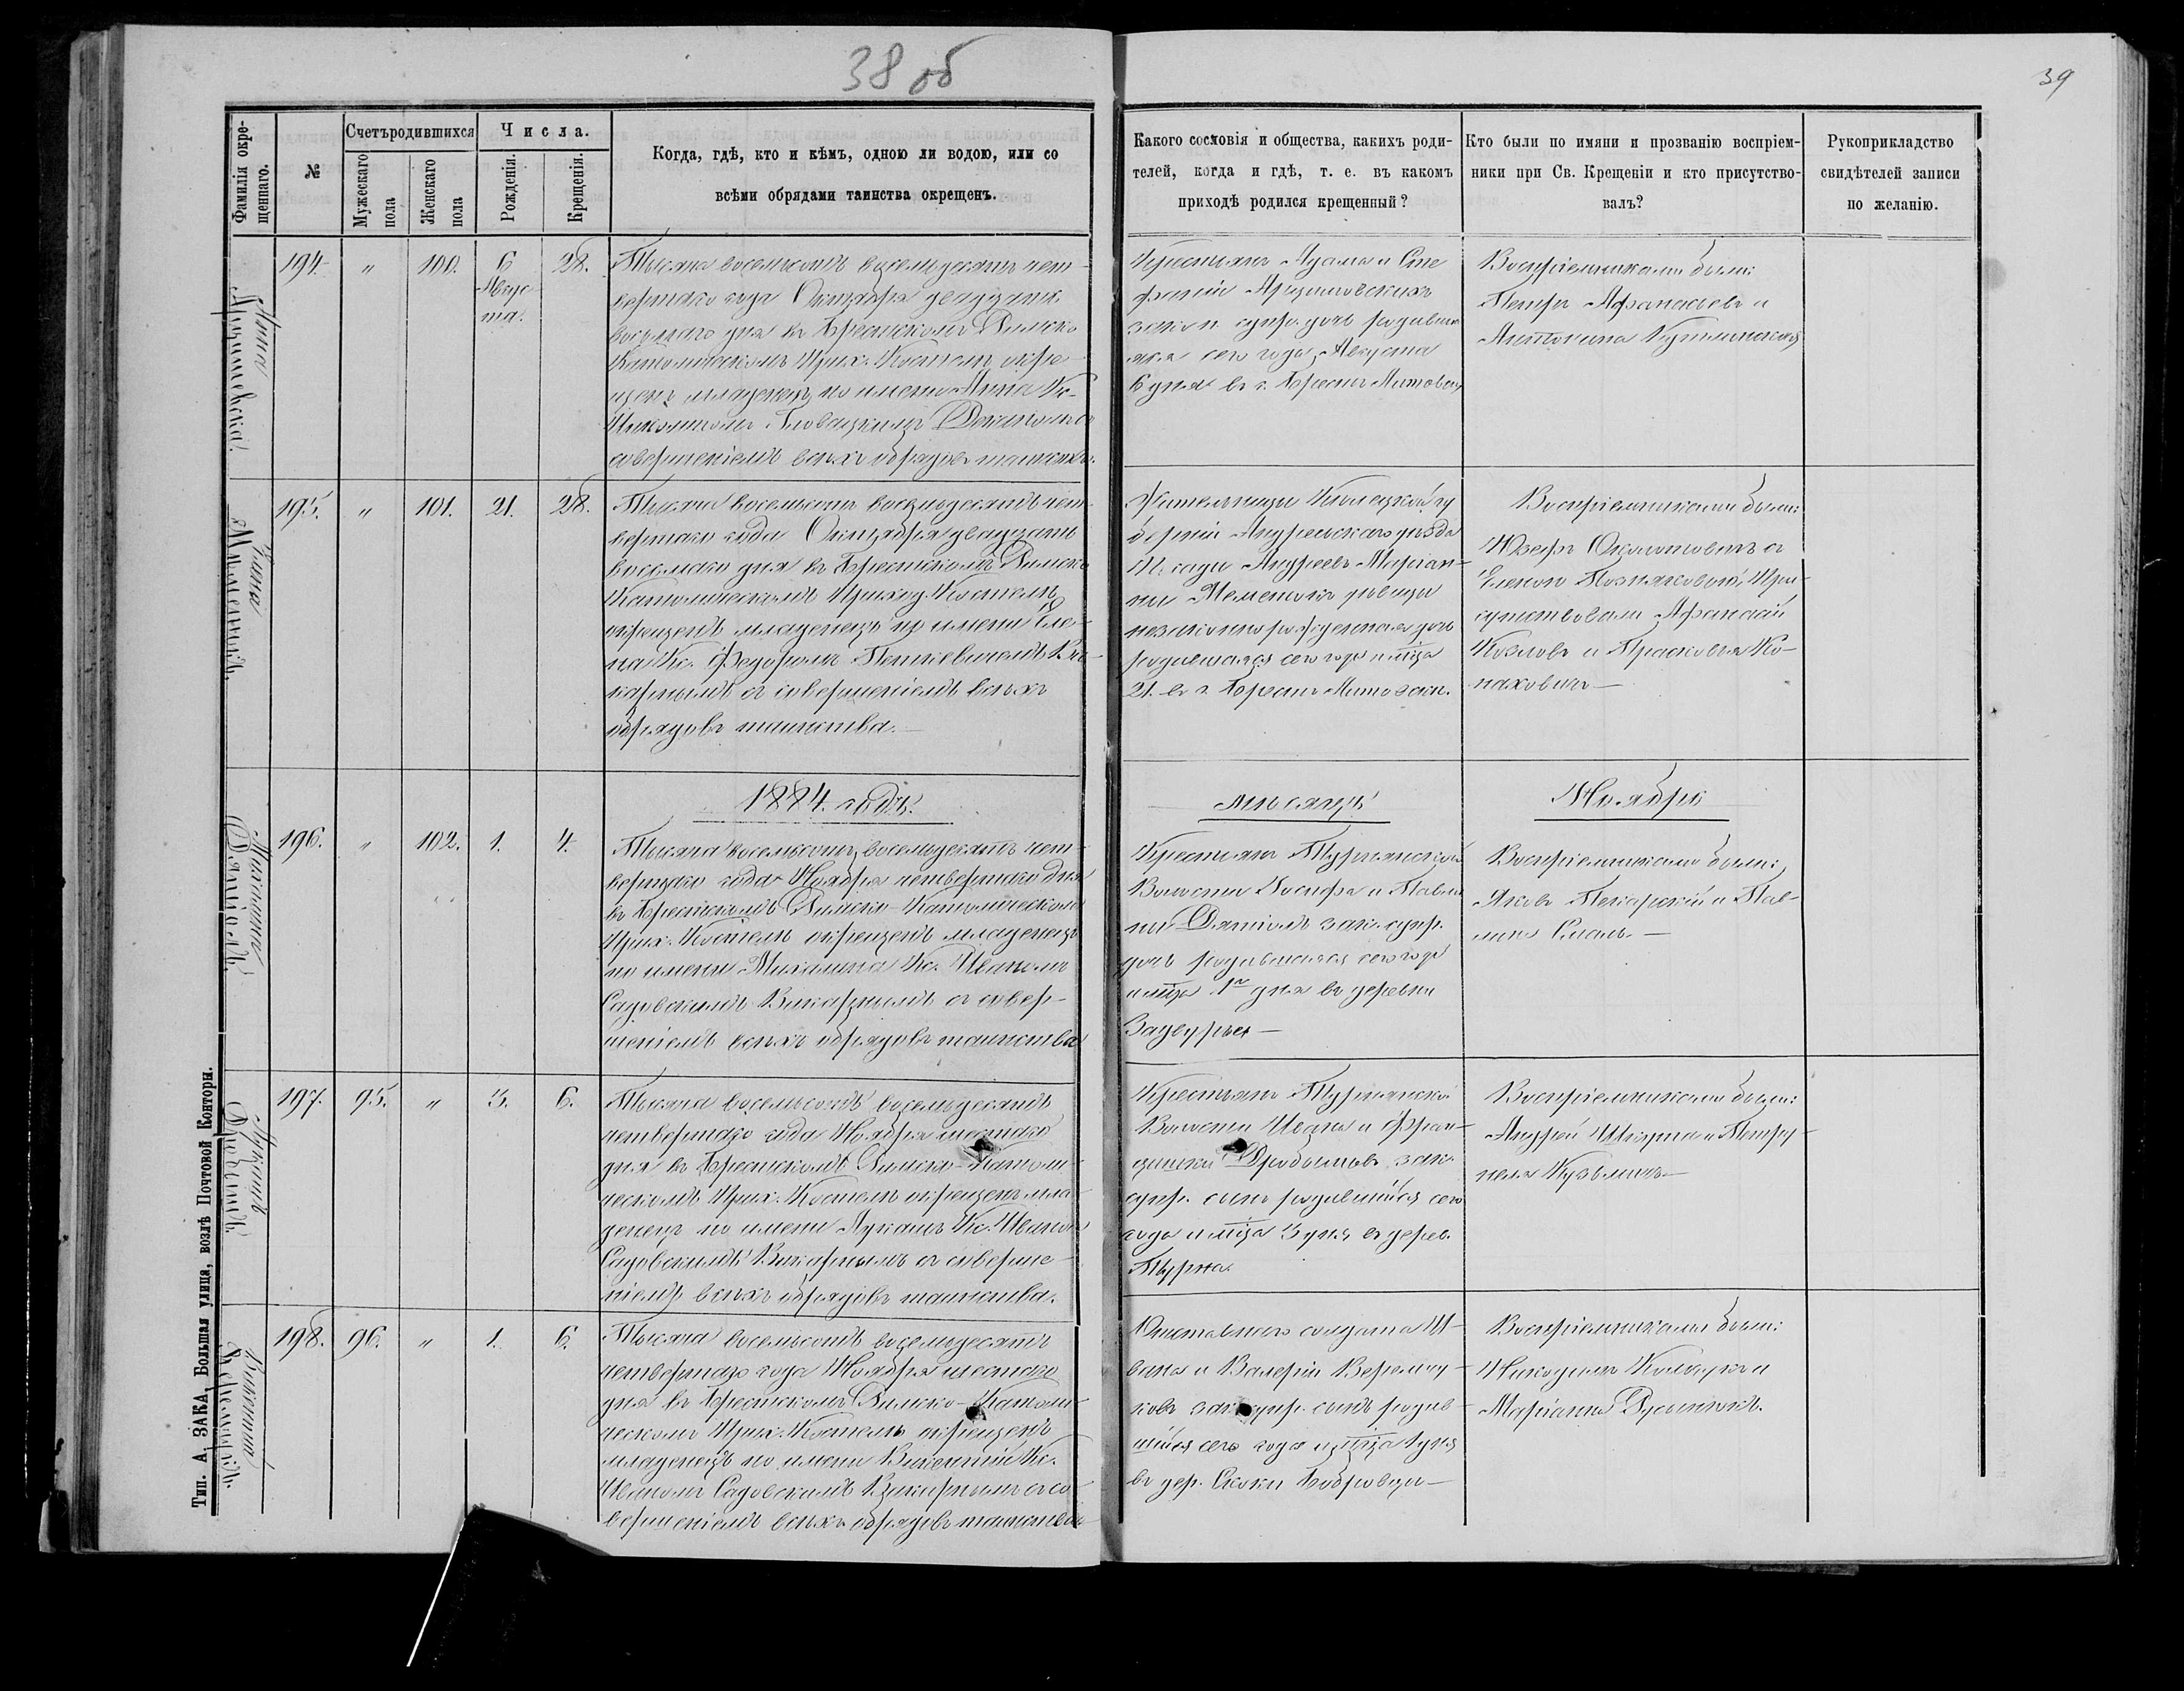 38 об
39
Фамилія окре-
щеннаго.
№
Счетъ родившихся
Мужескаго
пола
Женскаго
пола
Числа.
Рожденія.
Крещенія.
Когда, гдѣ, кто и кѣмъ, одною ли водою, или со
всѣми обрядами таинства окрещенъ.
Какого сословія и общества, какихъ роди-
телей, когда и гдѣ, т. е. въ какомъ
приходѣ родился крещенный?
Кто были по имяни и прозванію воспріем-
ники при Св. Крещеніи и кто присутство-
валъ?
Рукоприкладство
свидѣтелей записи
по желанію.
Анна
194. " 100. 6 Авгус-
та. 28.
Тысяча восемьсотъ восемьдесятъ чет-
вертаго года Октября двадцать
восьмаго дня въ Брестскомъ Римско
Католическомъ Прих. Костелѣ окре-
щенъ младенецъ по имени Анна Кс.
Деканомъ съ
совершеніемъ всѣхъ обрядовъ таинства.
Крестьянъ Адама и Сте
фаніи
закон. супр. дочь родивша
яся сего года Августа
6 дня въ г. Брестѣ Литовск.
Воспріемниками были:
Петръ Афанасьевъ и
Антонина
Елена
195. " 101. 21. 28.
Тысяча восемьсотъ восемьдесятъ чет-
вертаго года Октября двадцать
восьмаго дня въ Брестскомъ Римско
Католическомъ Приход. Костелѣ
окрещенъ младенецъ по имени Еле-
на Кс. Федоромъ Петкевичемъ Ви-
карнымъ съ совершеніемъ всѣхъ
обрядовъ таинства.—
Жительницы Кѣлецкой гу
берніи Андреевскаго уѣзда
Андреевъ Маріан-
ны дѣвицы
незаконнорожденная дочь
родившаяся сего года и мѣца
21. въ г. Брестѣ Литовск.
Воспріемниками были:
Юзефъ съ
Еленою При-
сутствовали Афанасій
Козловъ и Прасковья Ко-
наховичъ—
1884. годъ.
мѣсяцъ
Ноябрь
Михалина
Дятіолъ.
196. " 102. 1. 4.
Тысяча восемьсотъ восемьдесятъ чет-
вертаго года Ноября четвертаго дня
въ Брестскомъ Римско-Католическомъ
Прих. Костелѣ окрещенъ младенецъ
по имени Михалина Кс. Иваномъ
Садовскимъ Викарнымъ съ совер-
шеніемъ всѣхъ обрядовъ таинства
Крестьянъ Турнянской
Волости Іосифа и Павли
ны Дятіолъ зак. супр.
дочь родившаяся сего года
и мѣца 1го дня въ деревни
Задворье—
Воспріемниками были:
Яковъ Пекарскій и Пав-
лина —
Лукашъ
197. 95. " 3. 6.
Тысяча восемьсотъ восемьдесятъ
четвертаго года Ноября шестаго
дня въ Брестскомъ Римско-Католи-
ческомъ Прих. Костелѣ окрещенъ мла-
денецъ по имени Лукашъ Кс. Иваномъ
Садовскимъ Викарнымъ съ соверше-
ніемъ всѣхъ обрядовъ таинства.
Крестьянъ Турнянской
Волости Ивана и Фран-
цишки зак.
супр. сынъ родившійся сего
года и мѣца 3 дня въ дерев.
Турна.
Воспріемниками были:
Андрей и Петру-
неля Кузьмичъ—
Викентій
Веремчукъ.
198. 96. " 1. 6.
Тысяча восемьсотъ восемьдесятъ
четвертаго года Ноября шестаго
дня въ Брестскомъ Римско-Католи-
ческомъ Прих. Костелѣ окрещенъ
младенецъ по имени Викентій Кс.
Иваномъ Садовскимъ Викарнымъ съ со-
вершеніемъ всѣхъ обрядовъ таинства
Отставного солдата И-
вана и Валеріи Веремчу-
ковъ зак. супр. сынъ родив-
шійся сего года и мѣца 1 дня
въ дер. Скоки Бобровцы—
Воспріемниками были:
Никодимъ и
Маріанна
Тип. А. ЗАКА, Большая улица, возлѣ Почтовой Конторы.